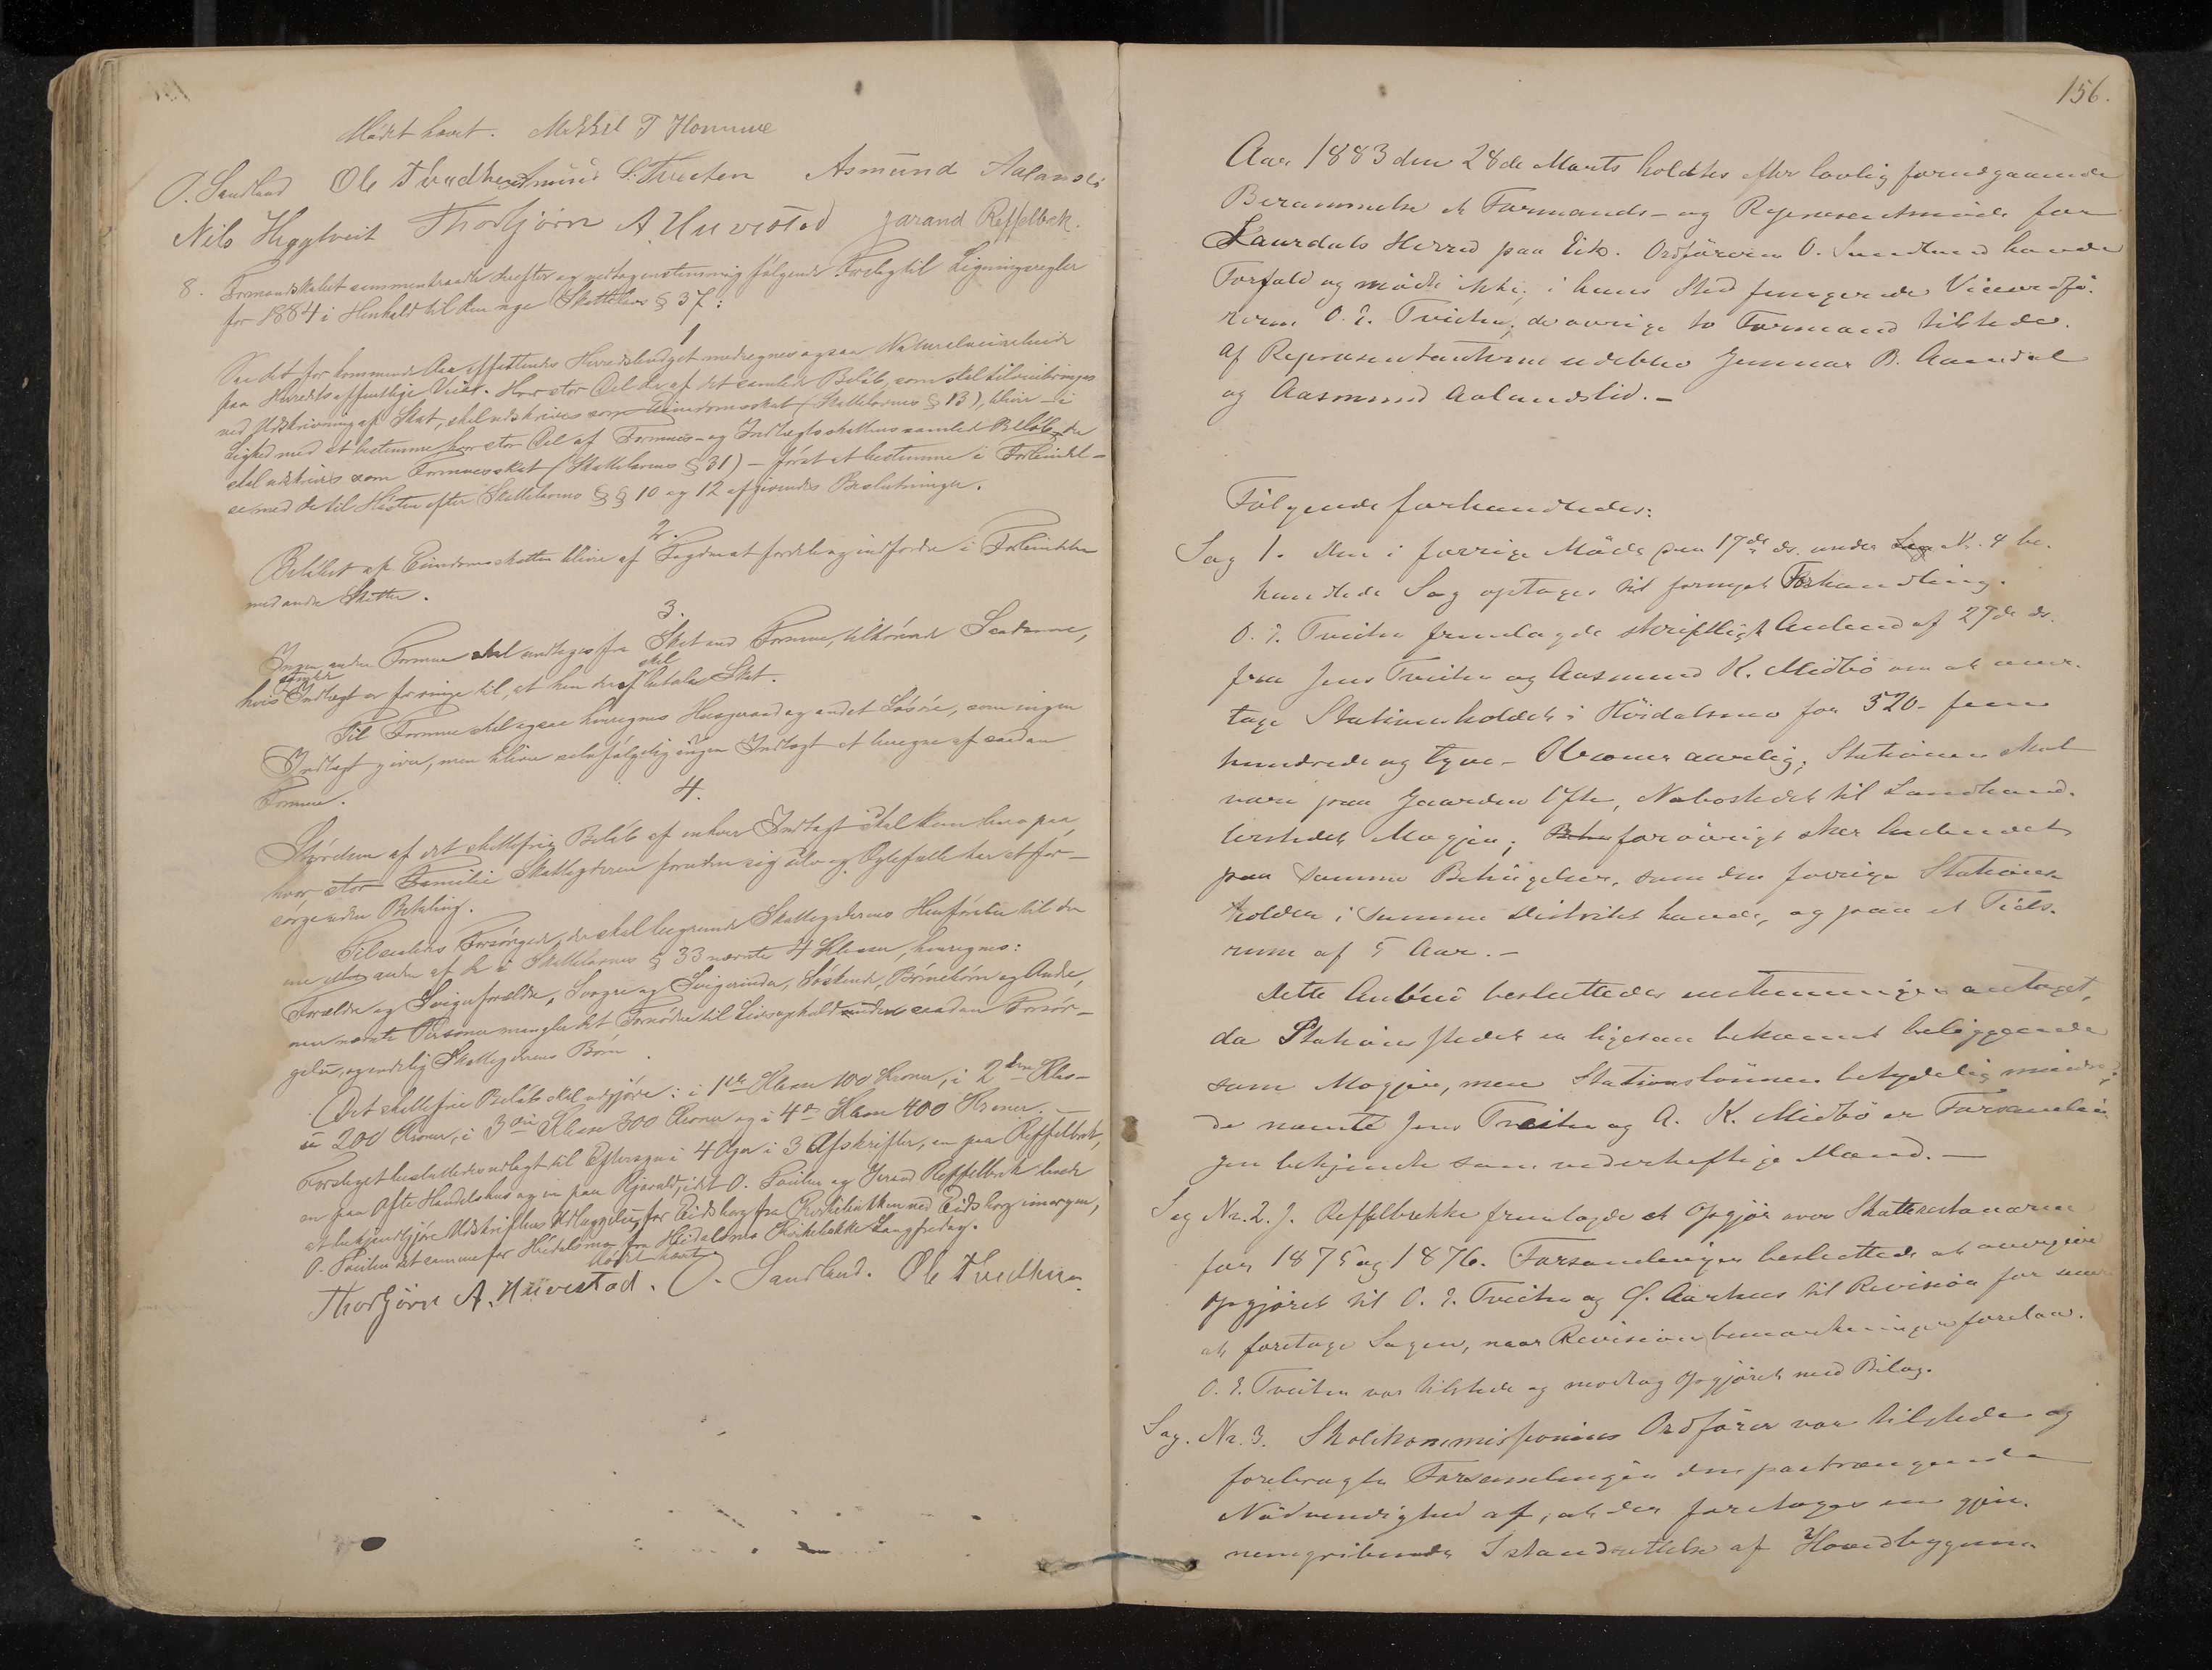 Mødet hævet. Mikkel T Homme
O. Sandland Ole Tvedten Amund S. Tveten Asmund Aalandsli
Nils Hegglveit Thorbjørn A. Huvestad Jarand Reffelbek.
8. Formandskabet sammentraadte derefter og vedtog enstemmig følgende Forslag til Ligningsregler
for 1884 i Henhold til den nye Skattelovs § 37:
1
I det for kommende Aar opsættendes Herredsbudget medregnes ogsaa Naturalveiarbeide
paa Herredets offentlige Veie. Hvor stor Del der af det samlede Beløb, som skal tilveiebringes
ved Udskrivning af Skat, skal udskrives som Eiendomsskat (Skattelovens § 13), bliver – i
Lighed med at bestemme hvor stor Del af Formues- og Indtægtsskattens samlede Beløb der
skal udskrives som Formuesskat (Skattelovens § 31) – først at bestemme i Forbindel-
se med de til Høsten efter Skattelovens §§ 10 og 12 afgivendes Beslutninger.
2.
Beløbet af Eiendomsskatten bliver af Fogden at fordele og indfordre i Forbindelse
med andre Skatter.
3.
Ingen anden Formue skal undtages fra Skat end Formue, tilhørende Saadanne,
hvis samlede Indtægt er for ringe til, at han deraf skal betale Skat.
Til Formue skal ogsaa henregnes Husgeraad og andet Løsøre, som ingen
Indtægt giver, men bliver selvfølgelig ingen Indtægt at beregne af saadan
Formue.
4.
Størrelsen af det skattefrie Beløb af enhver Indtægt skal kun bero paa
hvor stor Familie Skatteyderen foruden sig selv og Ægtefælle har at for-
sørge uden Betaling.
Til saadanne Forsørgede, der skal begrunde Skatteyderens Henførelse til den
ene eller anden af de i Skattelovens § 33 nævnte 4 Klasser, henregnes:
Forældre og Svigerforældre, Svogre og Svigerinder, Søskende, Børnebørn og Andre,
naar nævnte Personer mangler det Fornødne til Livsophold uden saadan Forsør-
gelse, og endelig Skatteyderens Børn.
Det skattefrie Beløb skal udgjøre: i 1ste Klasse 100 Kroner, i 2den Klas-
se 200 Kroner, i 3die Klasse 300 Kroner og i 4de Klasse 400 Kroner. –
Forslaget besluttedes udlagt til Eftersyn i 4 Uger i 3 Afskrifter, en paa Reffelbek,
en paa Ofte Handelshus og en paa Rjovald, idet O. Tveiten og Jarand Reffelbek lovede
at bekjendtgjøre Udskrifters Udlæggelse, for Eidsborg fra Kirkebakken ved Eidsborg imorgen,
O. Tveiten det samme for Høidalsmo fra Høidalsmo Kirkebakke Langfredag.
Mødet hævet
Thorbjørn A. Huvestad. O. Sandland. Ole Tvedten
156.
Aar 1883 den 28de Marts holdtes efter lovlig forudgaaende
Berammelse et Formands- og Repræsentmøde for
Laurdals Herred paa Eik. Ordføreren O. Sandland havde
Forfald og mødte ikke, i hans Sted fungerede Viceordfø-
reren O. E. Tveiten; de øvrige to Formænd tilstede.
Af Repræsentanterne udeblev Gunnar B. Aamdal
og Aasmund Aalandslid. –
Følgende forhandledes:
Sag 1. Den i forrige Møde paa 17de ds. under Sag N. 4 be-
handlede Sag optages til fornyet Forhandling.
O. E. Tveiten fremlagde skriftligt Anbud af 27de ds.
fra Jens Tveiten og Aasmund K. Midbø om at over-
tage Stationsholdet i Høidalsmo for 520 - fem
hundrede og tyve - Kroner aarlig; Stationen skal
være paa Gaarden Ofte, Nabostedet til Landhand-
lerstedet Mogjen; forøvrigt sker Anbudet
paa samme Betingelser, som den forrige Stations-
holder i samme Distrikt havde, og paa et Tids-
rum af 5 Aar. –
Dette Anbud besluttedes enstemmigen antaget,
da Stationsstedet er ligesaa bekvemt beliggende
som Mogjen, men Stationslønnen betydelig mindre;
de nævnte Jens Tveiten og A. K. Midbø er Forsamlin-
gen bekjendte som vederheftige Mænd. –
Sag Nr. 2. J. Reffelbekke fremlagde et Opgjør over Skatterestancerne
for 1875 og 1876. Forsamlingen besluttede at overgive
Opgjøret til O. E. Tveiten og G. Aarhus til Revision for
at foretage Sagen, naar Revisionsbemærkningen forelaa.
O. E. Tveiten var tilstede og modtog Opgjøret med Bilag.
Sag. Nr. 3. Skolekommissionens Ordfører var tilstede og
forebragte Forsamlingen den paatrængende
Nødvendighed af, at der foretages en gjen-
nemgribende Istandsættelse af Hovedbygningen